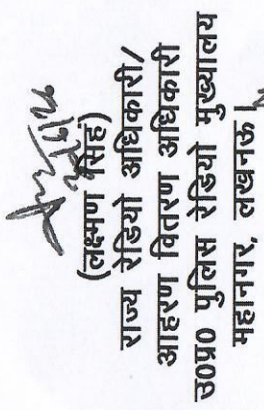 (लक्ष्मण सिंह)
राज्य रेडियो अधिकारी/
आहरण वितरण अधिकारी
उ०प्र० पुलिस रेडियो मुख्यालय
महानगर, लखनऊ।